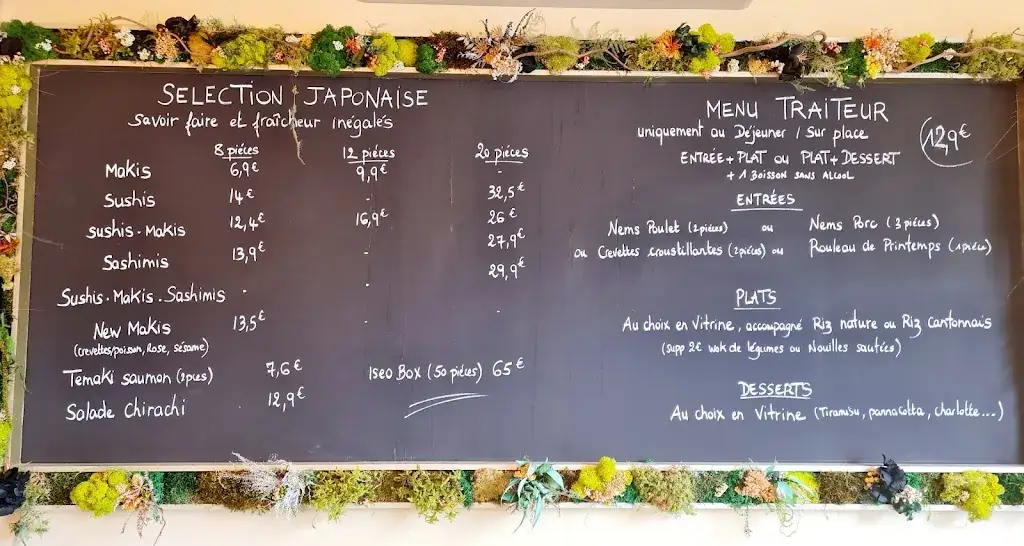 SELECTION JAPONAISE
Savoir faire et fraîcheur inégalés
8 pièces 12 pièces 20 pièces
Makis 6,9€ 9,9€ -
Sushis 14€ - 32,5€
Sushis - Makis 12,4€ 16,9€ 26€
Sashimis 13,9€ - 27,9€
Sushis - Makis - Sashimis - - 29,9€
New Makis 13,5€ - -
(crevettes/poisson, Rose, sésame)
Temaki saumon (2pces) 7,6€ Iseo Box (50 pièces) 65€
Salade Chirachi 12,9€
MENU TRAITEUR
uniquement au Déjeuner / Sur place
12,9€
ENTRÉE + PLAT ou PLAT + DESSERT
+ 1 BOISSON SANS ALCOOL
ENTRÉES
Nems Poulet (2 pièces) ou Nems Porc (3 pièces)
ou Crevettes croustillantes (2 pièces) ou Rouleau de Printemps (1 pièce)
PLATS
Au choix en Vitrine, accompagné Riz nature ou Riz Cantonnais
(supp 2€ wok de légumes ou Nouilles sautées)
DESSERTS
Au choix en Vitrine (Tiramisu, pannacotta, charlotte...)